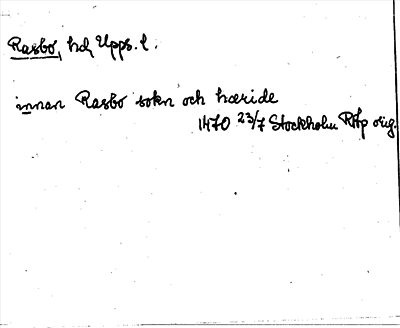 Rasbo, hd, Upps. l.
innan Rasbo sokn och hæride
1470 23/7 Stockholm RAp orig.